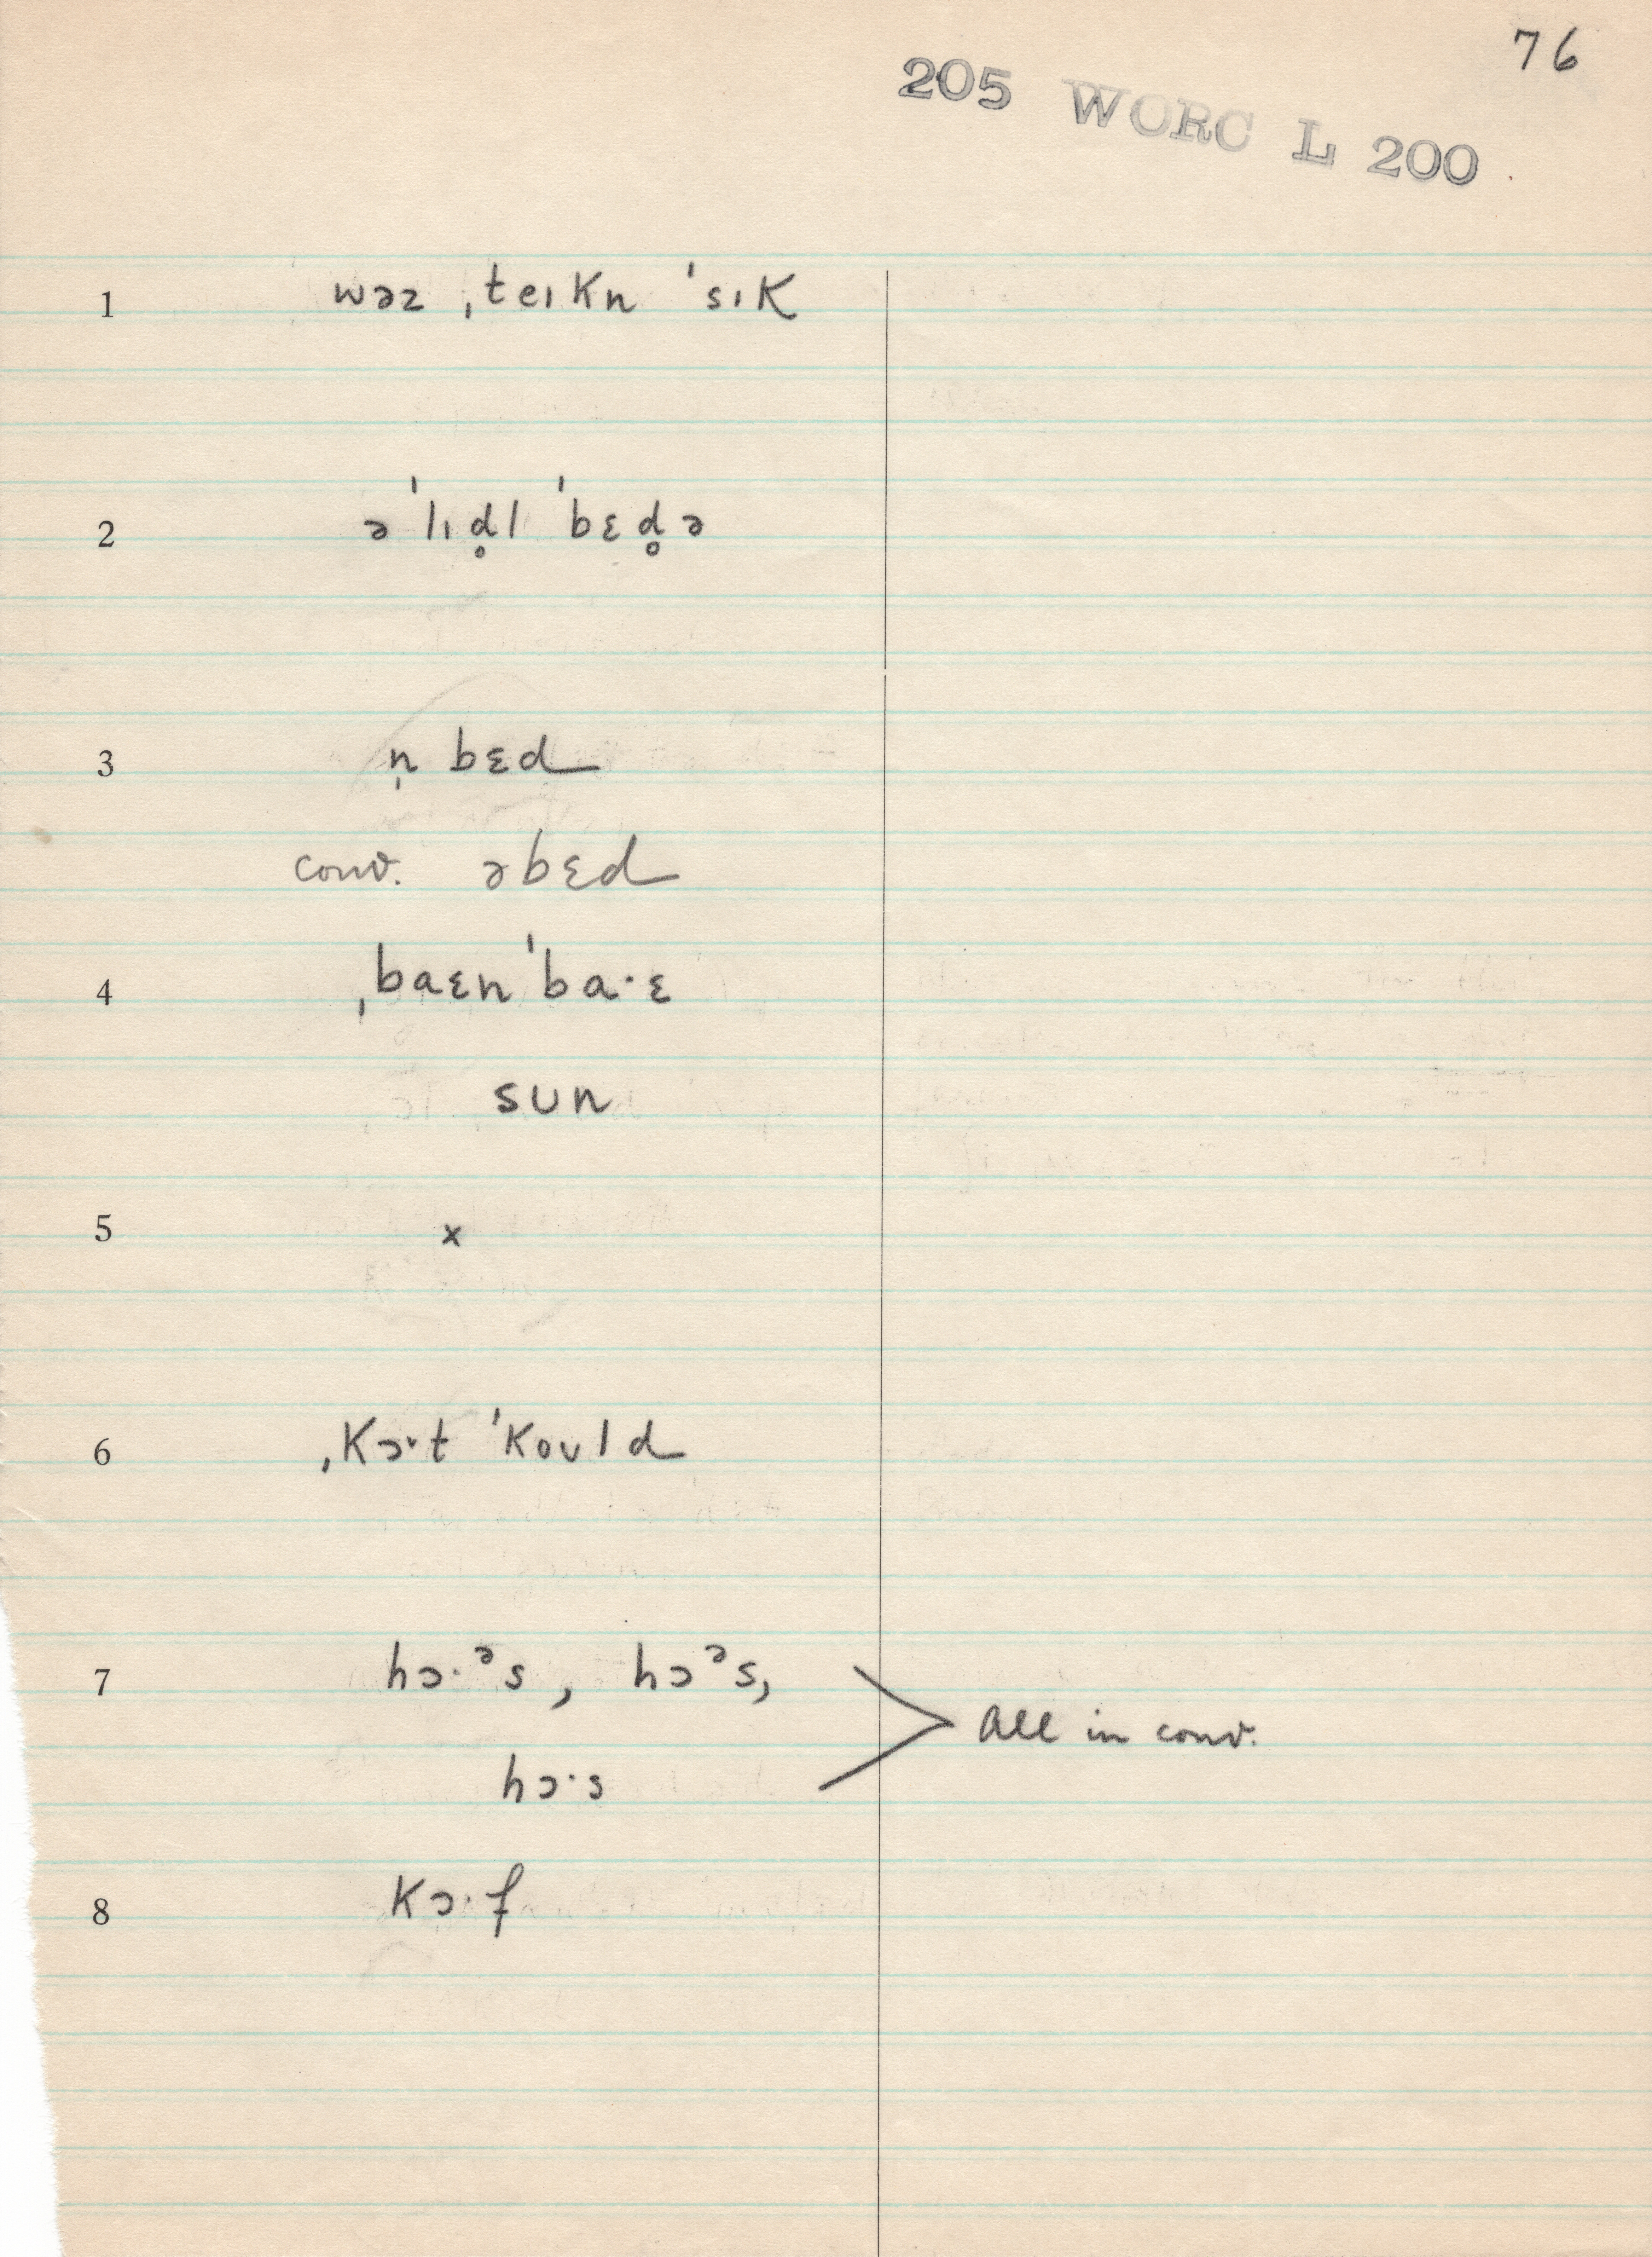 76
205 WORC L 200
1 wəz ˌteɪkn ˈsɪk
2 ə ˈlɪd̥l ˈbɛd̥ə
3 n̩ bɛd
conv. əbɛd
4 ˌbaɛn ˈbaˑɛ
sʊn
5 x
6 ˌkɔˑt ˈkoʊld
7 hɔˑᵊs, hɔᵊs,
All in conv.
hɔˑs
8 kɔˑf